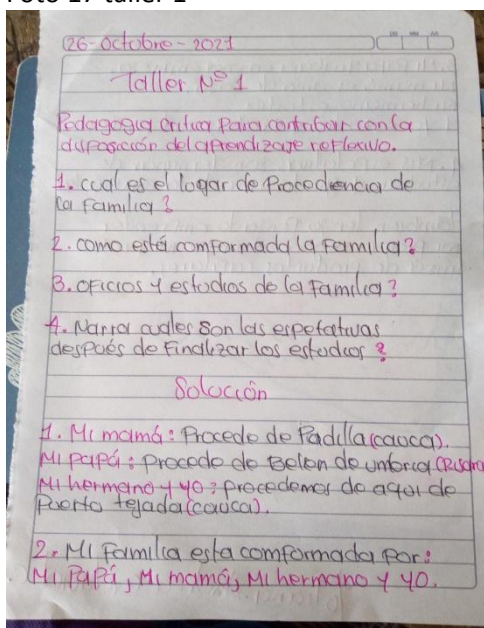 Foto 17 taller 1
26-Octobre-2021
Taller Nº 1
Pedagogia critica para contribuir con la
disposición del aprendizaje reflexivo.
1. cual es el lugar de Procedencia de
la familia?
2. como está comformada la familia?
3. oficios y estudios de la familia?
4. Narra cuales son las espetativas
después de Finalizar los estudios?
Solución
1. Mi mamá: Procede de Padilla (cauca).
Mi papá: procede de Belen de umbria (Risara
Mi hermano y yo: procedemos de aqui de
Puerto tejada (cauca).
2. Mi Familia esta comformada por:
Mi Papá, Mi mamá, Mi hermano y yo.